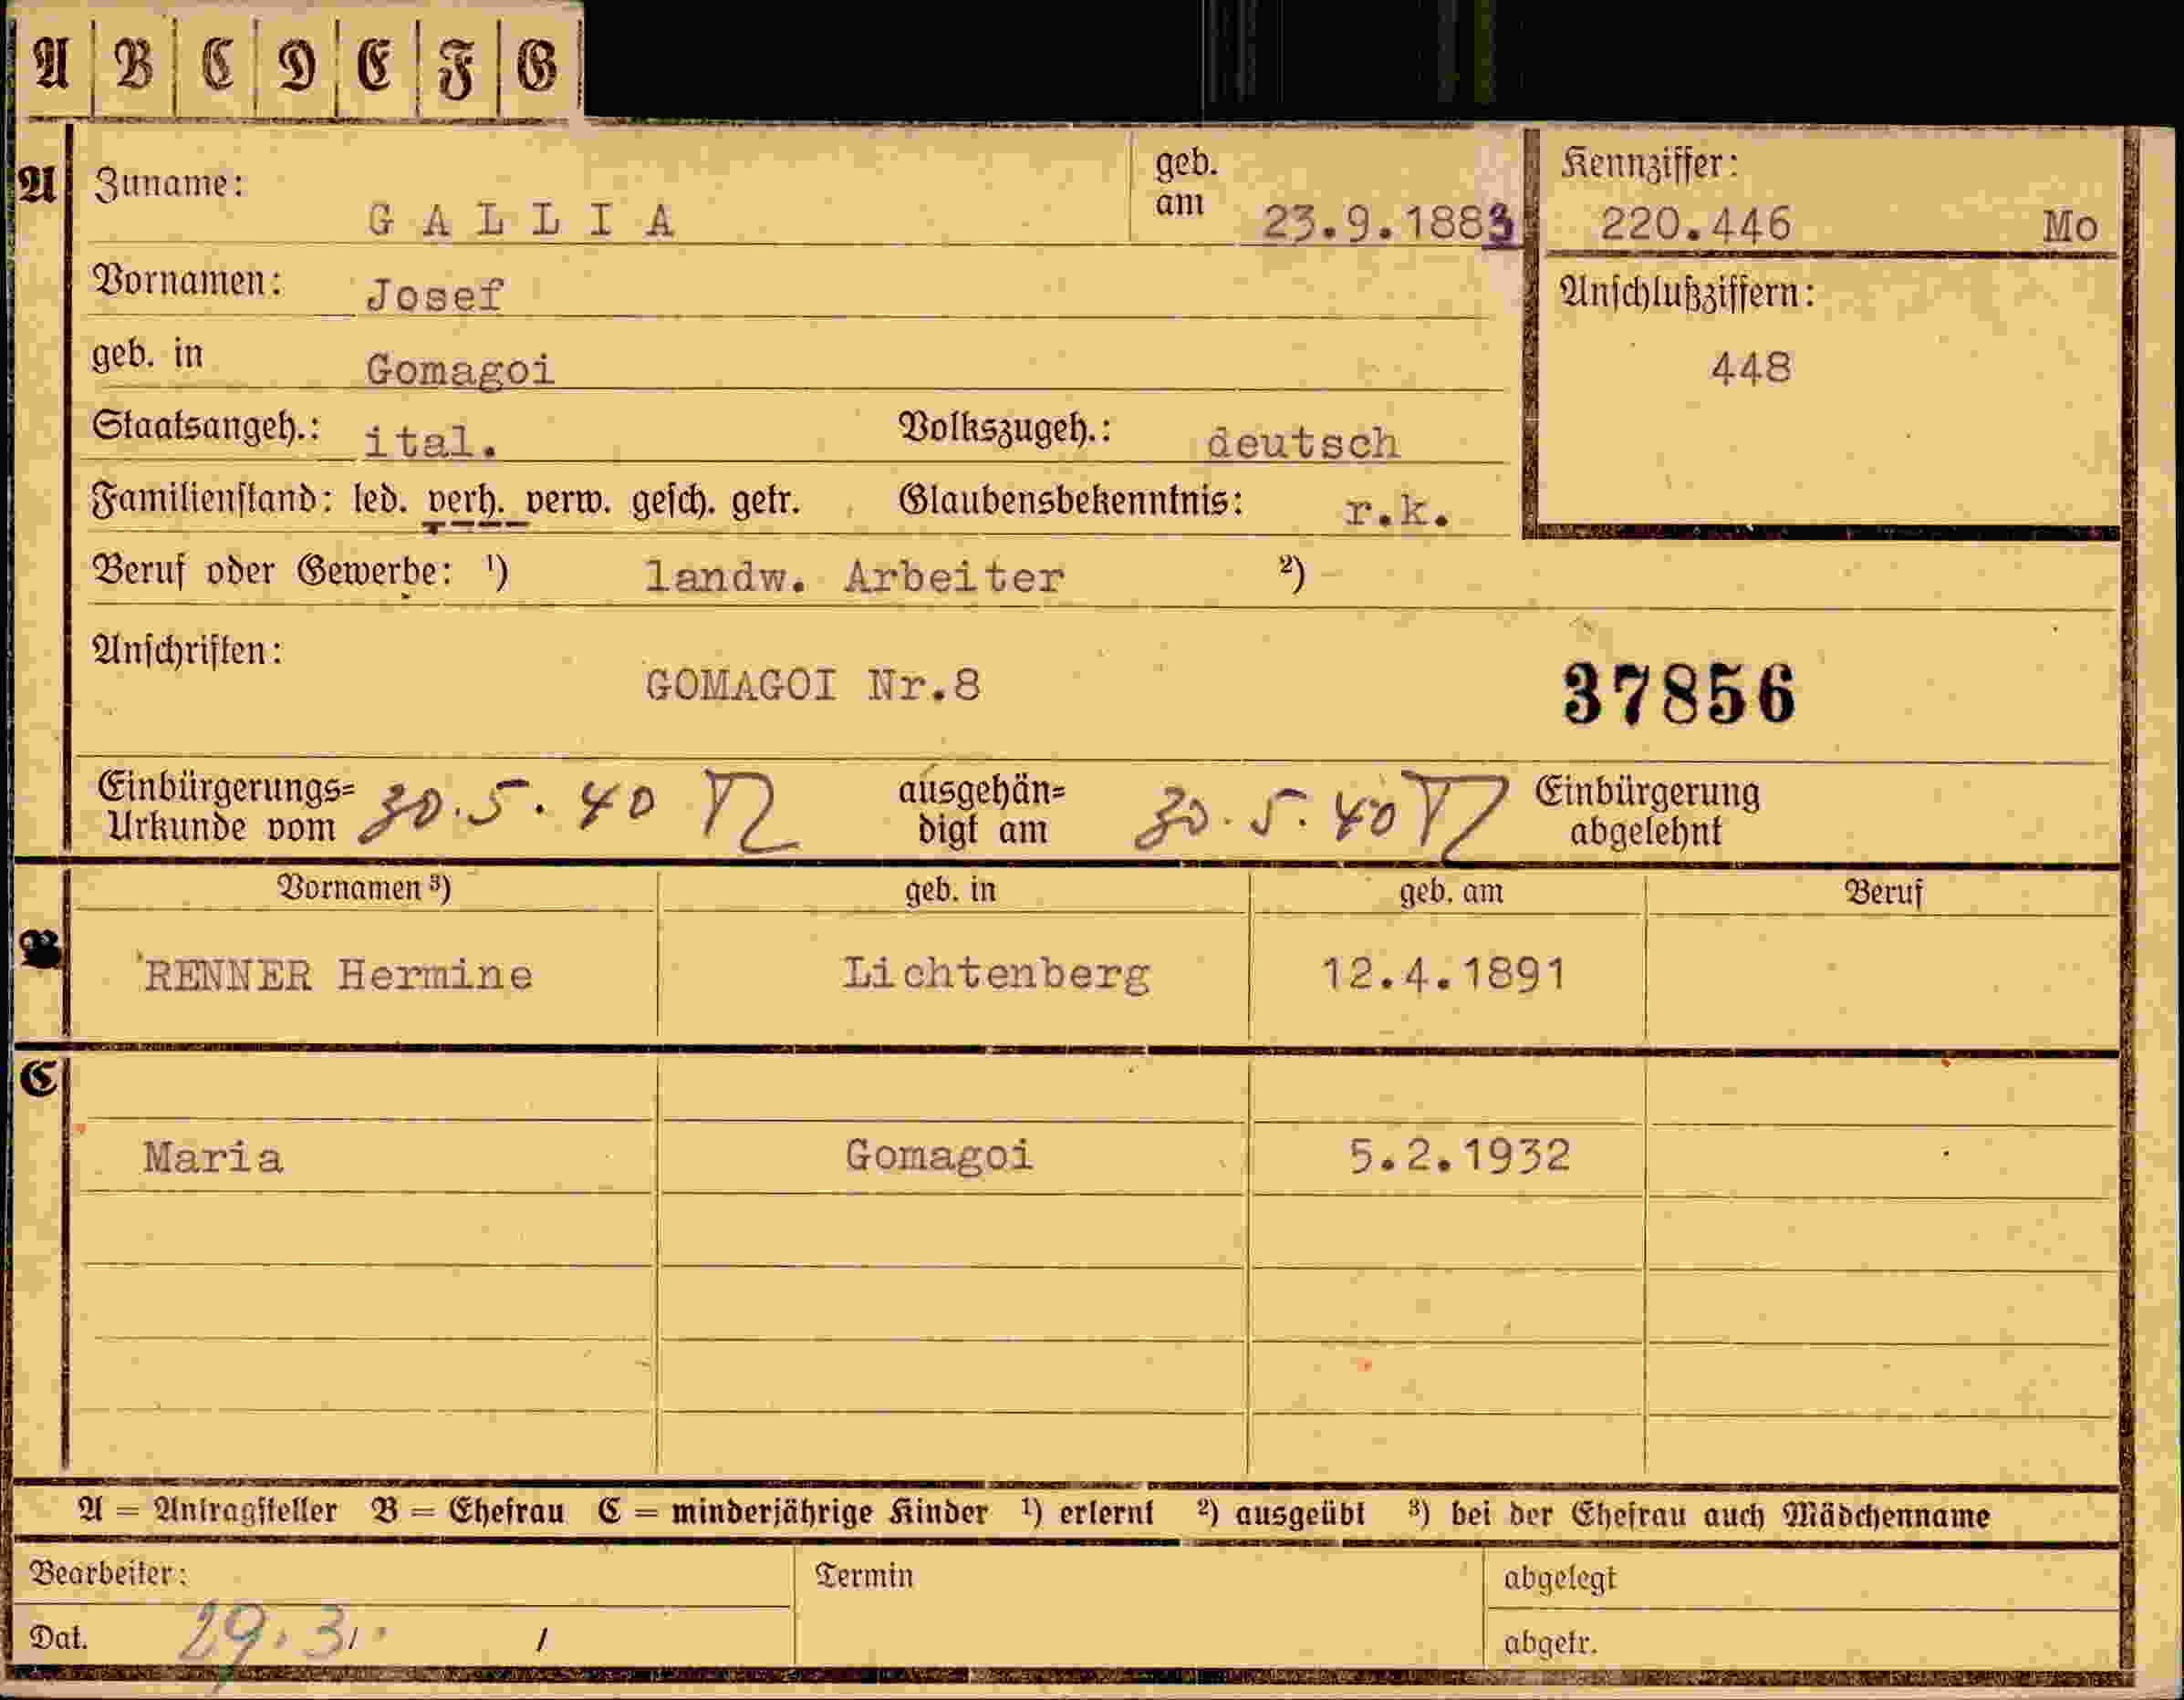 A B C D E F G
A Zuname: GALLIA geb. am 23.9.1883 Kennziffer: 220.446 Mo
Vornamen: Josef Anschlußziffern:
geb. in Gomagoi 448
Staatsangeh.: ital. Volkszugeh.: deutsch
Familienstand: led. verh. verw. gesch. getr. Glaubensbekenntnis: r.k.
Beruf oder Gewerbe: ¹) landw. Arbeiter ²)
Anschriften: GOMAGOI Nr.8 37856
Einbürgerungs= Urkunde vom 30.5.40 ausgehän= digt am 30.5.40 Einbürgerung abgelehnt
Vornamen ³) geb. in geb. am Beruf
B RENNER Hermine Lichtenberg 12.4.1891
C
Maria Gomagoi 5.2.1932
A = Antragsteller B = Ehefrau C = minderjährige Kinder ¹) erlernt ²) ausgeübt ³) bei der Ehefrau auch Mädchenname
Bearbeiter: Termin abgelegt
Dat. 29.3. / abgetr.